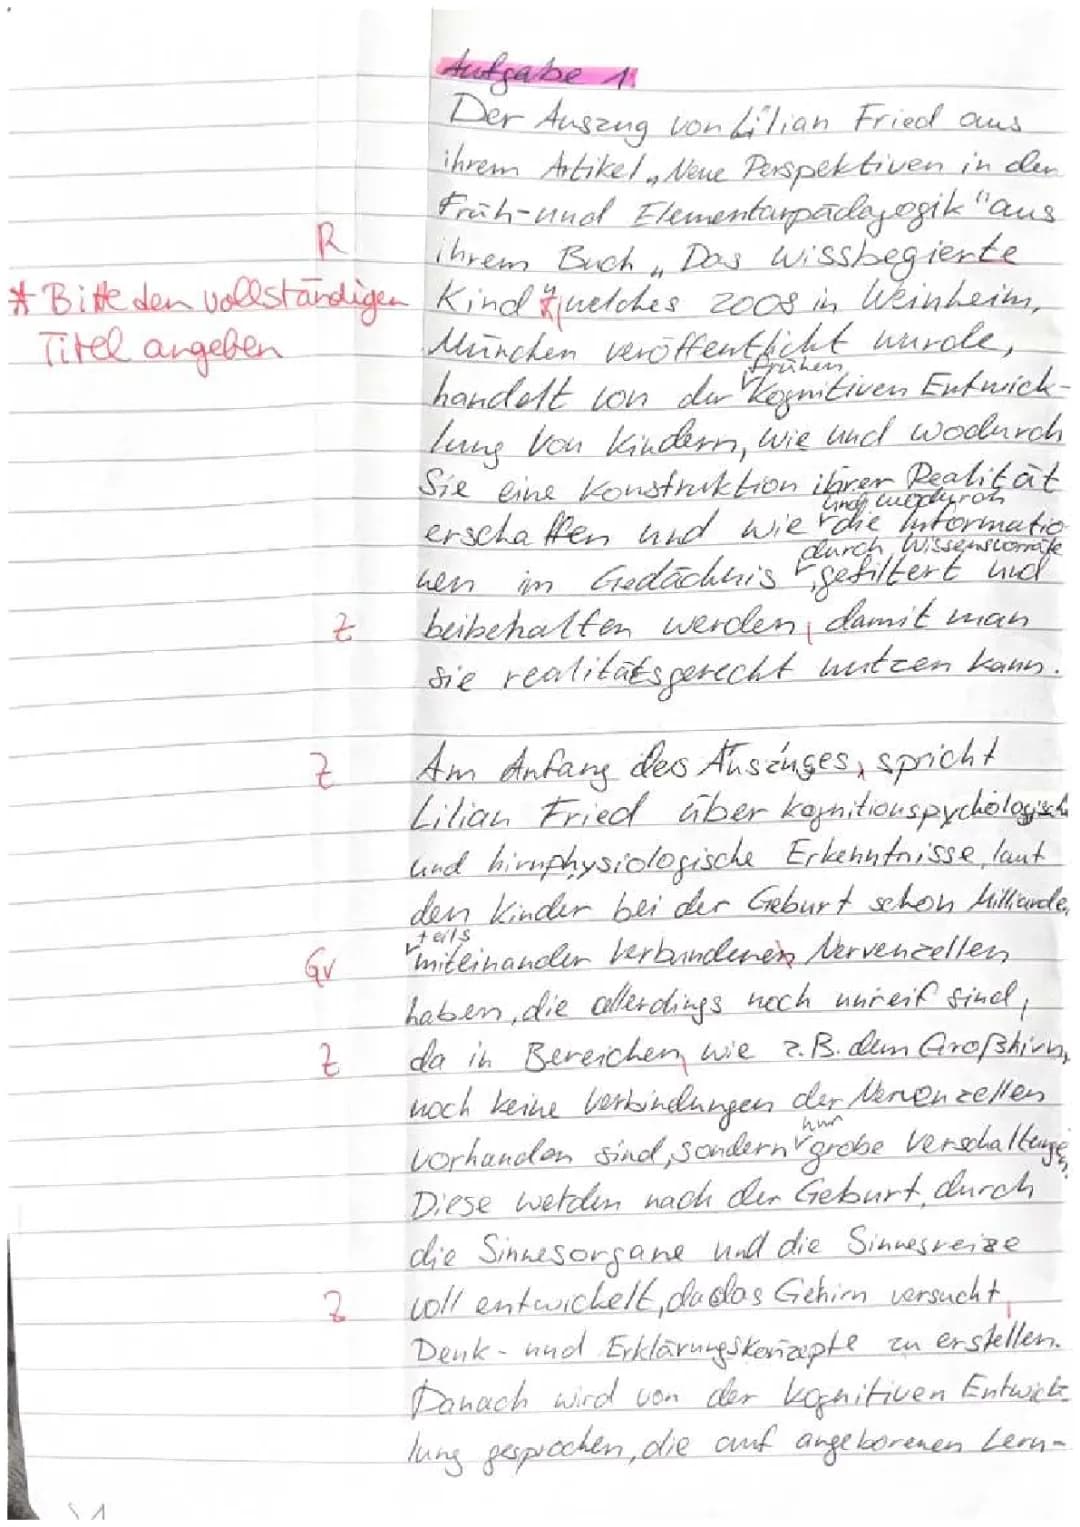 Aufgabe 1:
Der Auszug von Lilian Fried aus
ihrem Artikel „Neue Perspektiven in der
Früh- und Elementarpädagogik" aus
R
ihrem Buch „Das wissbegierte
* Bitte den vollständigen
Titel angeben
Kind"*, welches 2008 in Weinheim,
München veröffentlicht wurde,
frühen
handelt von der kognitiven Entwick-
lung von Kindern, wie und wodurch
Sie eine Konstruktion ihrer Realität
und wodurch
erschaffen und wie die Informatio
durch Wissensvorräte
nen im Gedächnis gefiltert und
Z
beibehalten werden, damit man
sie realitätsgerecht nutzen kann.
Z
Am Anfang des Auszuges, spricht
Lilian Fried über kognitionspychologisch
und hirnphysiologische Erkenntnisse, laut
den Kinder bei der Geburt schon Milliarde,
teils
Gv
miteinander verbundenen Nervenzellen
haben, die allerdings noch unreif sind,
Z
da in Bereichen, wie z.B. dem Großhirn,
noch keine Verbindungen der Nervenzellen
nur
vorhanden sind, sondern grobe Verschaltunge
Diese werden nach der Geburt, durch
die Sinnesorgane und die Sinnesreize
Z
voll entwickelt, da das Gehirn versucht,
Denk- und Erklärungskonzepte zu erstellen.
Danach wird von der kognitiven Entwick-
lung gesprochen, die auf angeborenen Lern-